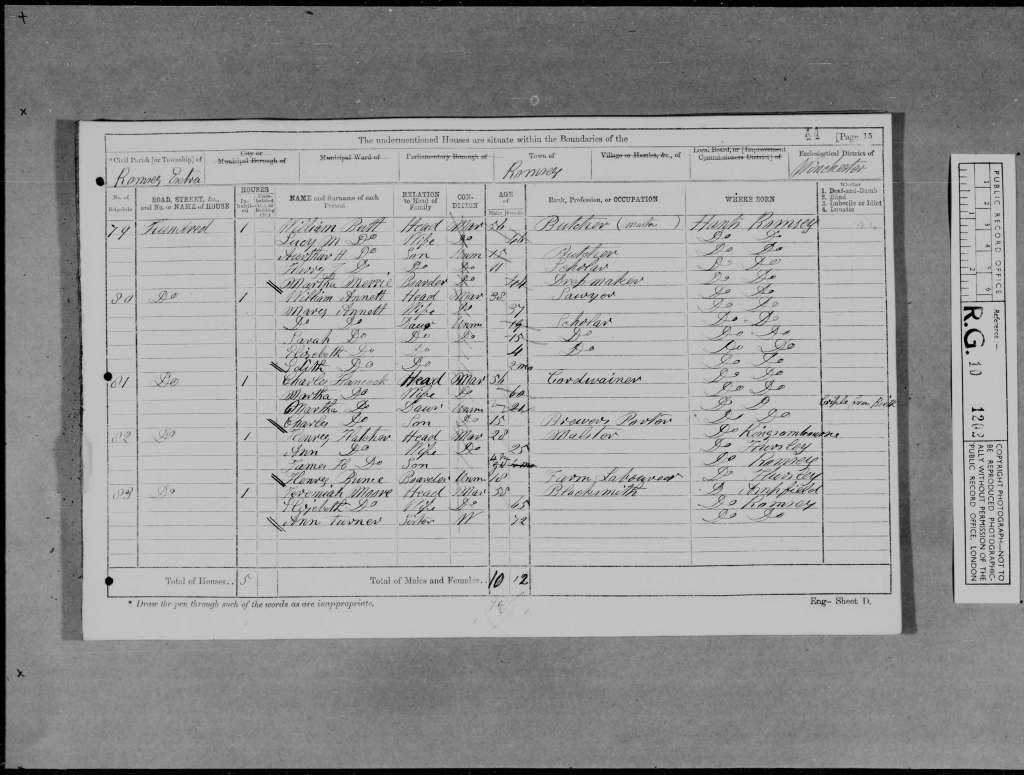 The undermentioned Houses are situate within the Boundaries of the
44 [Page 15
*Civil Parish [or Township] of
City or Municipal Borough of
Municipal Ward of
Parliamentary Borough of
Town of
Village or Hamlet, &c., of
Local Board, or [Improvement Commissioners District] of
Ecclesiastical District of
Romsey Extra Romsey Winchester
No. of Schedule
ROAD, STREET, &c., and No. or NAME of HOUSE
HOUSES
NAME and Surname of each Person
RELATION to Head of Family
CONDITION
AGE of
Males Females
Rank, Profession, or OCCUPATION
WHERE BORN
Whether
1. Deaf-and-Dumb
2. Blind
3. Imbecile or Idiot
4. Lunatic
79 Hundred 1 William Butt Head Mar 56 Butcher (master) Hants Romsey
Lucy M Do Wife Do Do Do
Arthur H Do Son Unm 15 Butcher Do Do
Do Do Do 11 Scholar Do Do
Martha Boarder Do Do Do
80 Do 1 William Annett Head Mar 38 Sawyer Do Do
Mary Annett Wife Do 37 Do Do
Do Do Daur Unm Scholar Do Do
Sarah Do Do Do 15 Do Do Do
Elizabeth Do Do 4 Do Do Do
Edith Do Do 2mo Do Do
81 Do 1 Charles Head Mar 56 Cordwainer Do Do
Martha Do Wife Do 60 Do Do
Martha Do Daur Unm Do Do Cripple from Birth
Charles Do Son Do 15 Brewers Porter Do Do
82 Do 1 Henry Head Mar 28 Malster Do Kingsombourne
Ann Do Wife Do 25 Do Hursley
James H Do Son Do Romsey
Henry Boarder Unm 18 Farm Labourer Do Hursley
83 Do 1 Jeremiah Moore Head Mar 58 Blacksmith Do
Elizabeth Do Wife Do 65 Do Romsey
Ann Turner Sister W 72 Do Do
Total of Houses.. 5 Total of Males and Females.. 10 12
* Draw the pen through such of the words as are inappropriate.
Eng- Sheet D.
PUBLIC RECORD OFFICE
1 2 3 4 5 6
Reference :-
R.G. 10 1202
COPYRIGHT PHOTOGRAPH—NOT TO BE REPRODUCED PHOTOGRAPHIC-ALLY WITHOUT PERMISSION OF THE PUBLIC RECORD OFFICE, LONDON